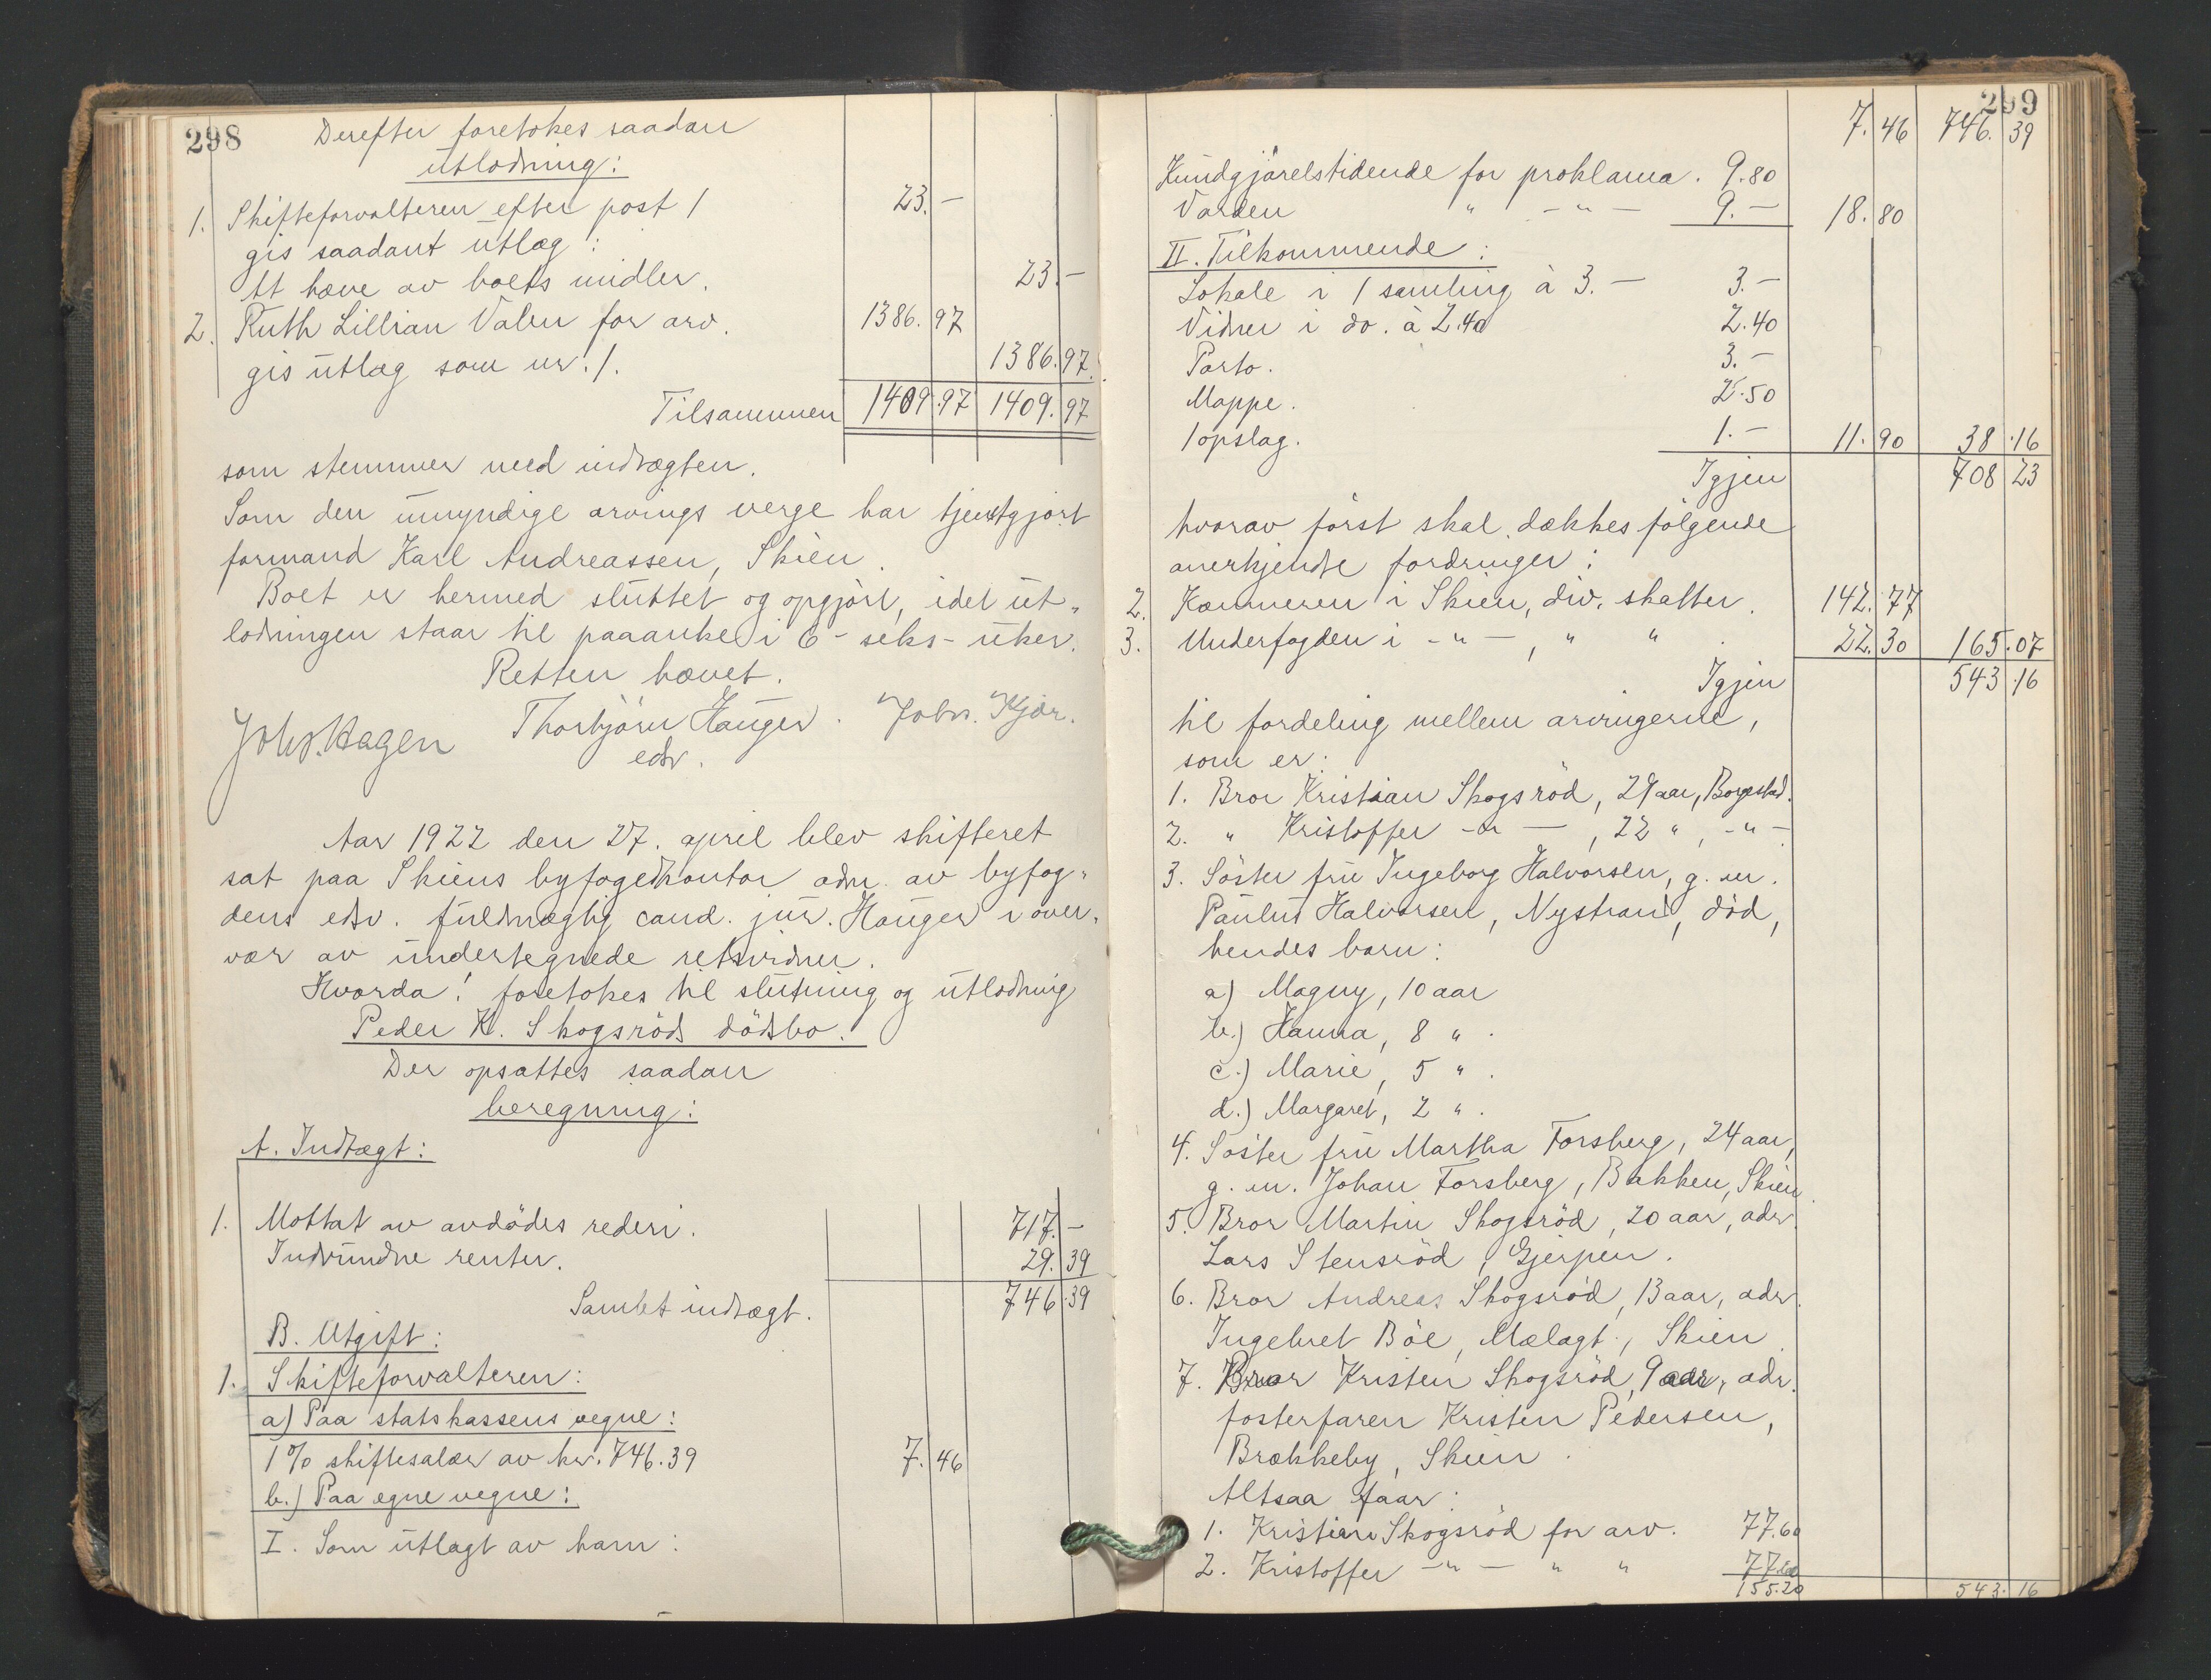 298
Derefter foretokes saadan
utlodning:
1. Skifteforvalteren efter post 1 23.–
gis saadant utlæg:
At hæve av boets midler. 23.–
2. Ruth Lillian Valen for arv. 1386.97
gis utlæg som nr. 1. 1386.97.
Tilsammen 1409.97 1409.97
som stemmer med indtægten.
Som den umyndige arvings verge har tjenstgjort
formand Karl Andreassen, Skien.
Boet er hermed sluttet og opgjört, idet ut-
lodningen staar til paaanke i 6 - seks - uker.
Retten hævet.
Johs. Hagen Thorbjörn Hauger. Johs. Kjær.
edsv.
Aar 1922 den 27. april blev skifteret
sat paa Skiens byfogedkontor adm. av byfog-
dens edsv. fuldmægtig cand. jur. Hauger i over-
vær av undertegnede retsvidner.
Hvorda: foretokes til slutning og utlodning
Peder K. Skogsröds dödsbo.
Der opsattes saadan
beregning:
A. Indtægt:
1. Mottat av avdödes rederi. 717.–
Indvundne renter. 29.39
Samlet indtægt. 746.39
B. Utgift:
1. Skifteforvalteren:
a) Paa statskassens vegne:
1% skiftesalær av kr. 746.39 7.46
b.) Paa egne vegne:
I. Som utlagt av ham:
299
7.46 746.39
Kundgjörelstidende for proklama. 9.80
Varden " - " - 9.– 18.80
II. Tilkommende:
Lokale i 1 samling à 3.– 3.–
Vidner i do. à 2.40 2.40
Porto. 3.–
Mappe. 2.50
1 opslag. 1.– 11.90 38.16
Igjen 708 23
hvorav först skal dækkes fölgende
anerkjendte fordringer:
2. Kæmneren i Skien, div. skatter. 142.77
3. Underfogden i - " - , " " . 22.30 165.07
Igjen 543.16
til fordeling mellem arvingerne,
som er:
1. Bror Kristian Skogsröd, 29 aar, Borgestad.
2. " Kristoffer - " - , 22 " , - " -
3. Söster fru Ingeborg Halvorsen, g. m.
Paulus Halvorsen, Nystrand, död,
hendes barn:
a) Magny, 10 aar
b.) Hanna, 8 " .
c.) Marie, 5 " .
d.) Margaret, 2 " .
4. Söster fru Martha Forsberg, 24 aar,
g. m. Johan Forsberg, Bakken, Skien.
5. Bror Martin Skogsröd, 20 aar, adr.
Lars Stensröd, Gjerpen.
6. Bror Andreas Skogsröd, 13 aar, adr.
Ingebret Böe, Mælagt., Skien.
7. Bror Kristen Skogsröd, 9 aar, adr.
fosterfaren Kristen Pedersen,
Brækkeby, Skien.
Altsaa faar:
1. Kristian Skogsröd for arv. 77.60
2. Kristoffer - " - " " 77.60
155.20 543.16